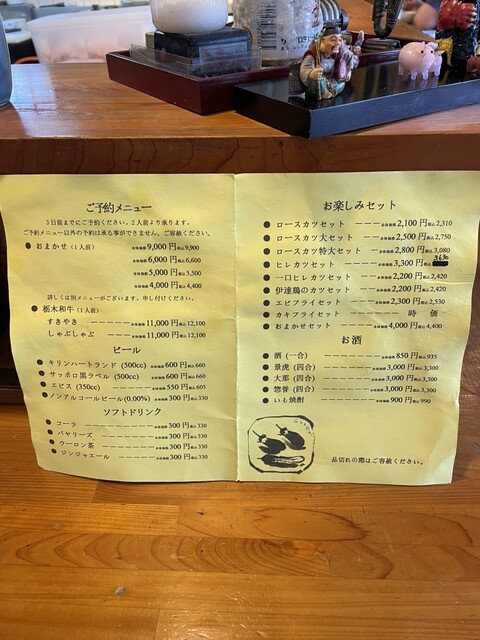 ご予約メニュー
3日前までにご予約ください。2人前より承ります。
ご予約メニュー以外の予約は承る事ができません。ご容赦ください。
● おまかせ(1人前)
9,000円 税込9,900
6,000円 税込6,600
5,000円 税込5,500
4,000円 税込4,400
詳しくは別メニューがございます。申し付けください。
● 栃木和牛(1人前)
すきやき ーーーーー 11,000円 税込12,100
しゃぶしゃぶ ーーーー 11,000円 税込12,100
ビール
● キリンハートランド (500cc) 600円 税込660
● サッポロ黒ラベル (500cc) 600円 税込660
● エビス (350cc) ーーーー 550円 税込605
● ノンアルコールビール(0.00%) 300円 税込330
ソフトドリンク
● コーラ ーーーーー 300円 税込330
● バヤリーズ ーーーー 300円 税込330
● ウーロン茶 ーーーー 300円 税込330
● ジンジャエール ーーー 300円 税込330
お楽しみセット
● ロースカツセット ーーー 2,100円 税込2,310
● ロースカツ大セット ーー 2,500円 税込2,750
● ロースカツ特大セット ー 2,800円 税込3,080
● ヒレカツセット ーーーー 3,300円 税込3630
● 一口ヒレカツセット ーー 2,200円 税込2,420
● 伊達鶏のカツセット ーー 2,200円 税込2,420
● エビフライセット ーーー 2,300円 税込2,530
● カキフライセット ーーー 時 価
● おまかせセット ーーーー 4,000円 税込4,400
お酒
● 酒 (一合) ーーーーー 850円 税込935
● 景虎 (四合) ーーーー 3,000円 税込3,300
● 大那 (四合) ーーーー 3,000円 税込3,300
● 惣誉 (四合) ーーーー 3,000円 税込3,300
● いも焼酎 ーーーーー 900円 税込990
品切れの際はご容赦ください。